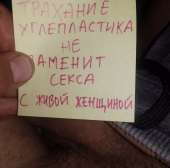 ТРАХАНИЕ
УГЛЕПЛАСТИКА
НЕ
ЗАМЕНИТ
СЕКСА
С ЖИВОЙ ЖЕНЩИНОЙ